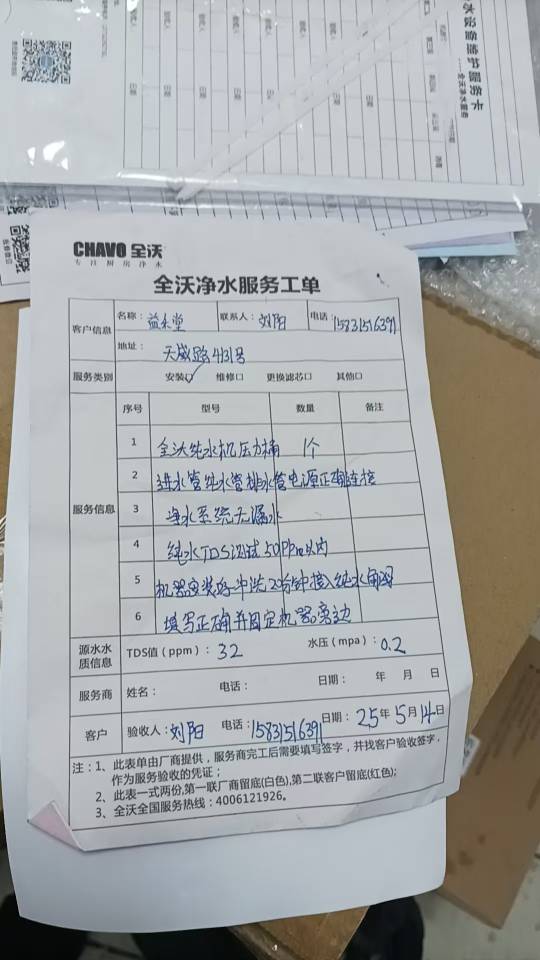 水设备维护服务卡
全沃净水服务
CHAVO 全沃
专注厨房净水
全沃净水服务工单
客户信息 名称：益禾堂 联系人：刘阳 电话：15831516391
地址：天威路4131号
服务类别 安装口 维修口 更换滤芯口 其他口
服务信息 序号 型号 数量 备注
1 全沃纯水机压力桶 1个
2 进水管纯水管排水管电源正确连接
3 净水系统无漏水
4 纯水TDS测试50PPm以内
5 机器安装好冲洗20分钟接入纯水角阀
6 填写正确并固定机器旁边
源水水质信息 TDS值（ppm）：32 水压（mpa）：0.2
服务商 姓名： 电话： 日期： 年 月 日
客户 验收人：刘阳 电话：15831516391 日期：25年5月14日
注：1、此表单由厂商提供，服务商完工后需要填写签字，并找客户验收签字，
作为服务验收的凭证；
2、此表一式两份,第一联厂商留底(白色),第二联客户留底(红色);
3、全沃全国服务热线：4006121926。